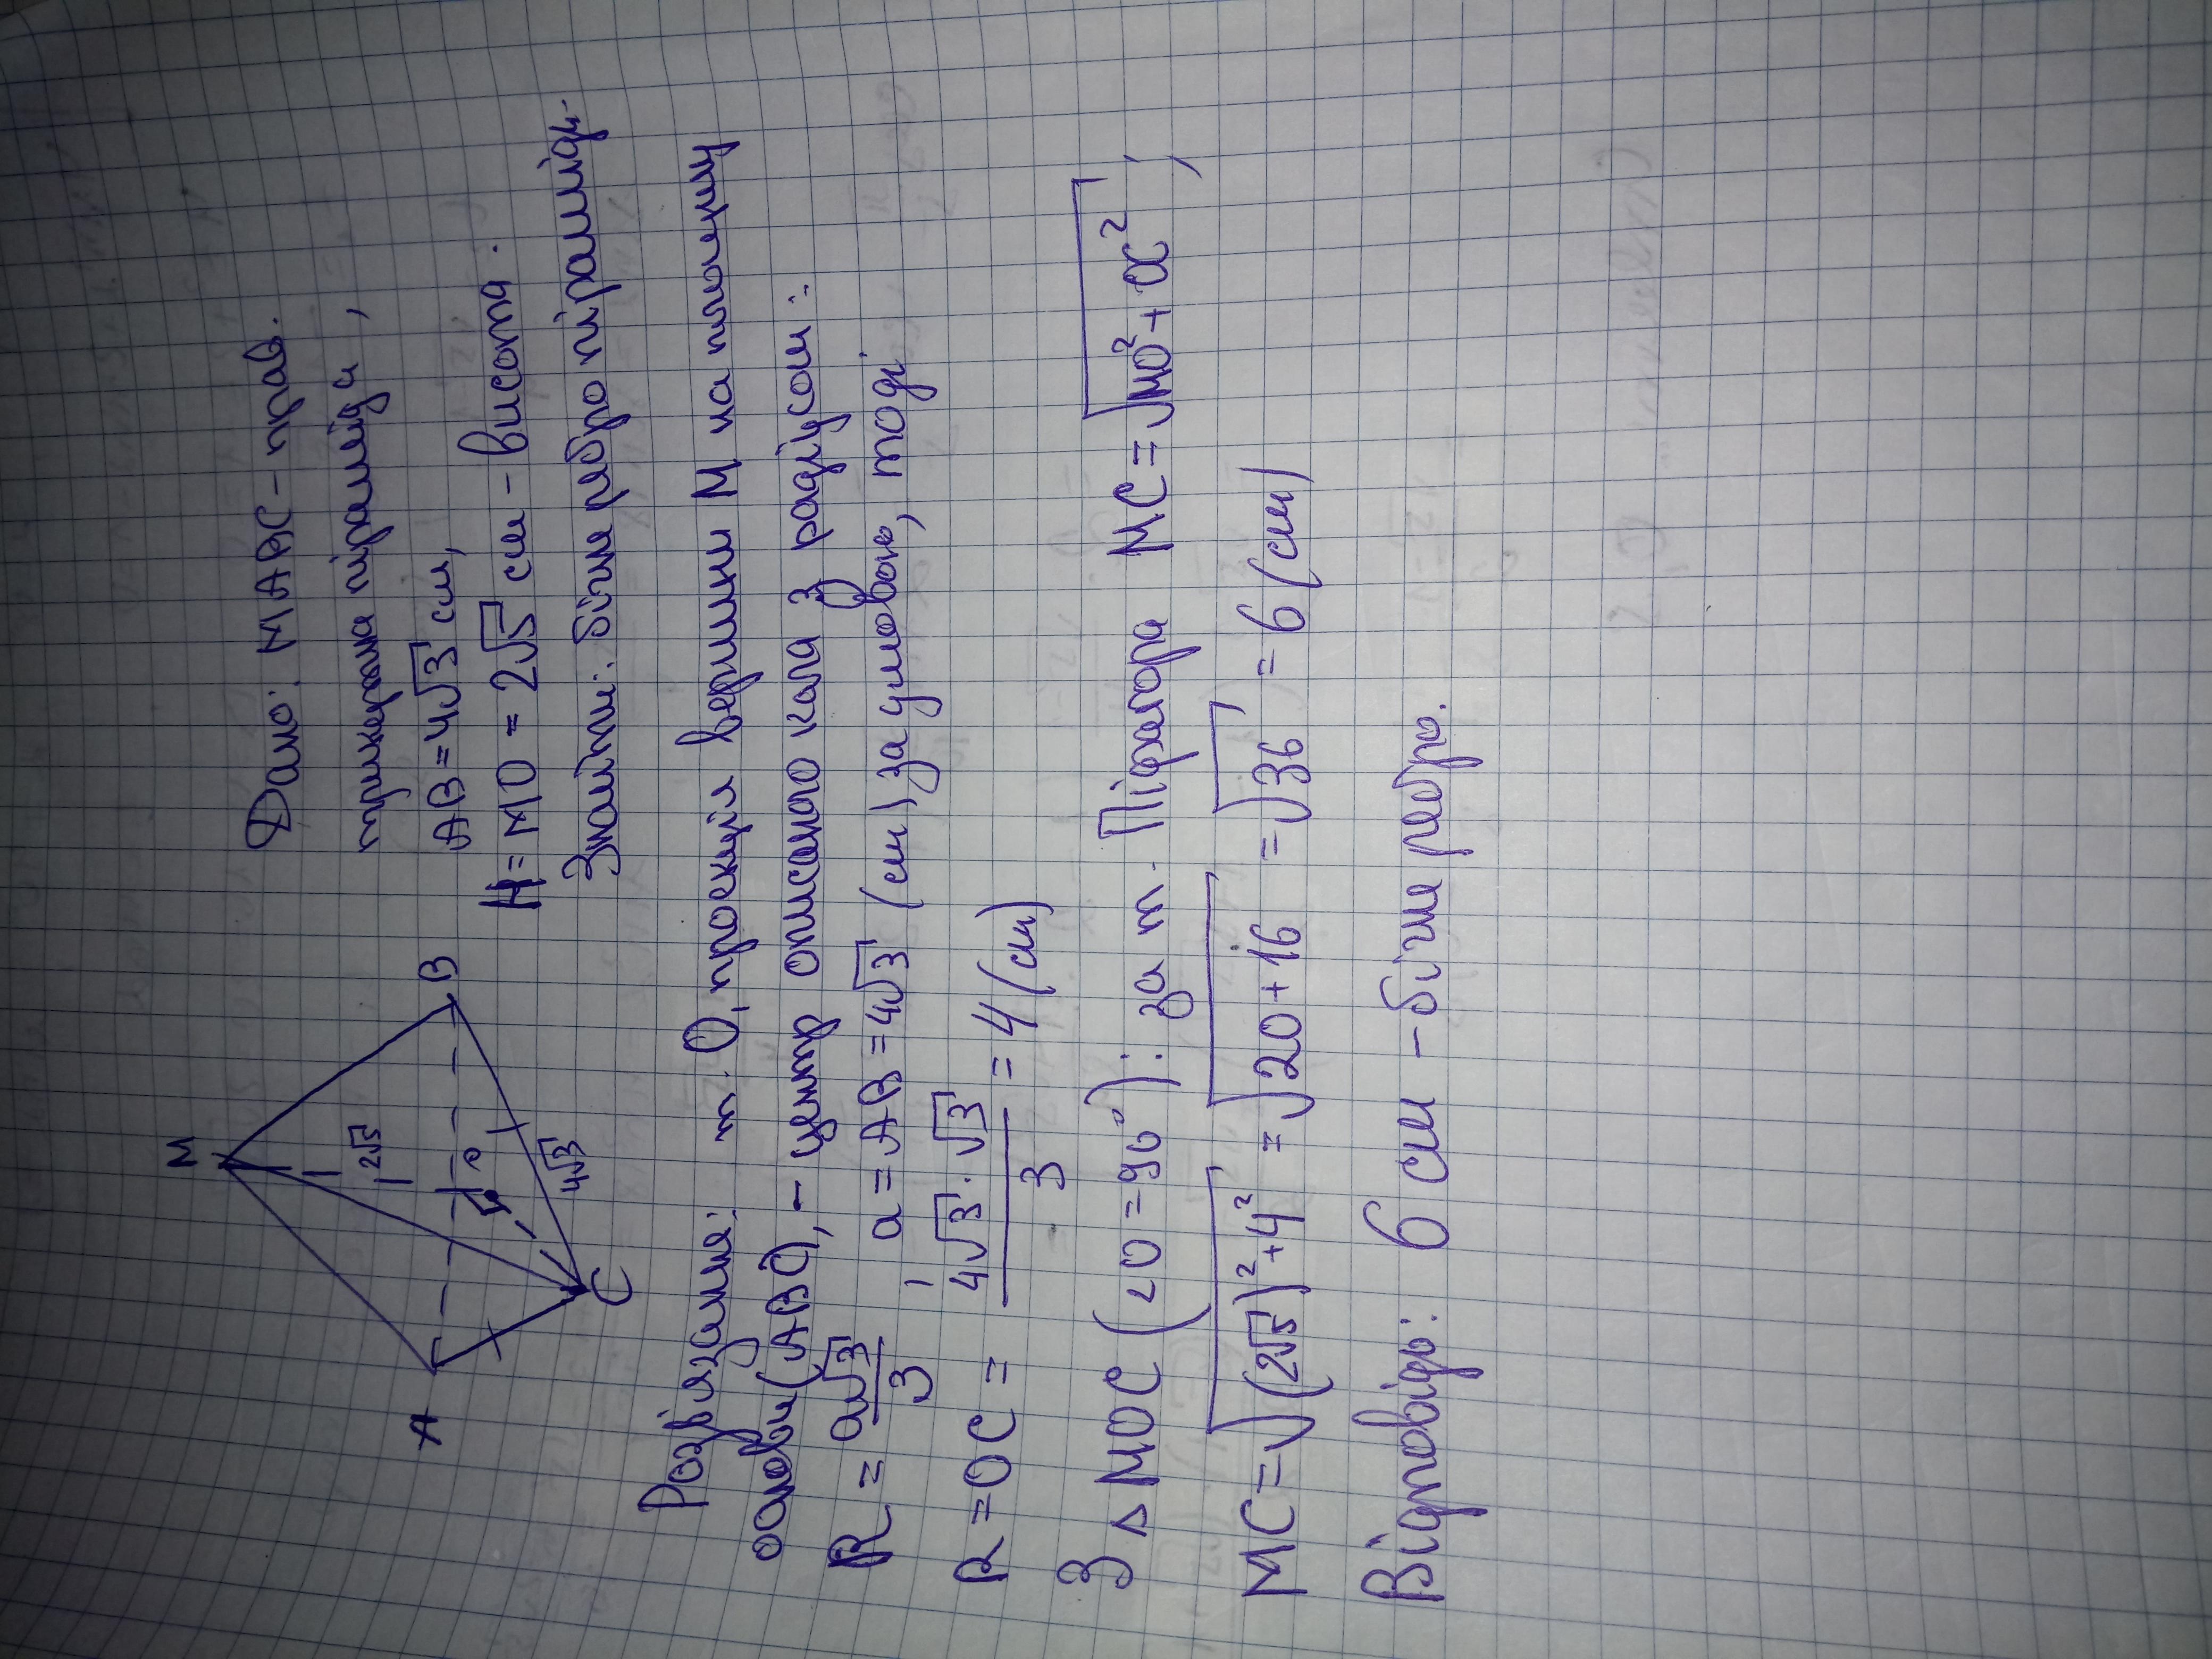 M
2√5
A
B
O
4√3
C
Дано: MABC – прав.
трикутна піраміда,
AB = 4√3 см,
H = MO = 2√5 см – висота.
Знайти: бічне ребро піраміди.
Розв'язання: т. O, проекція вершини M на площину
основи (ABC), – центр описаного кола з радіусом:
R = a√3/3 a = AB = 4√3 (см) за умовою, тоді
R = OC = 4√3 · √3 / 3 = 4 (см)
З △ MOC (∠O = 90°): за т. Піфагора MC = √MO² + OC² ;
MC = √(2√5)² + 4² = √20 + 16 = √36 = 6 (см)
Відповідь: 6 см – бічне ребро.